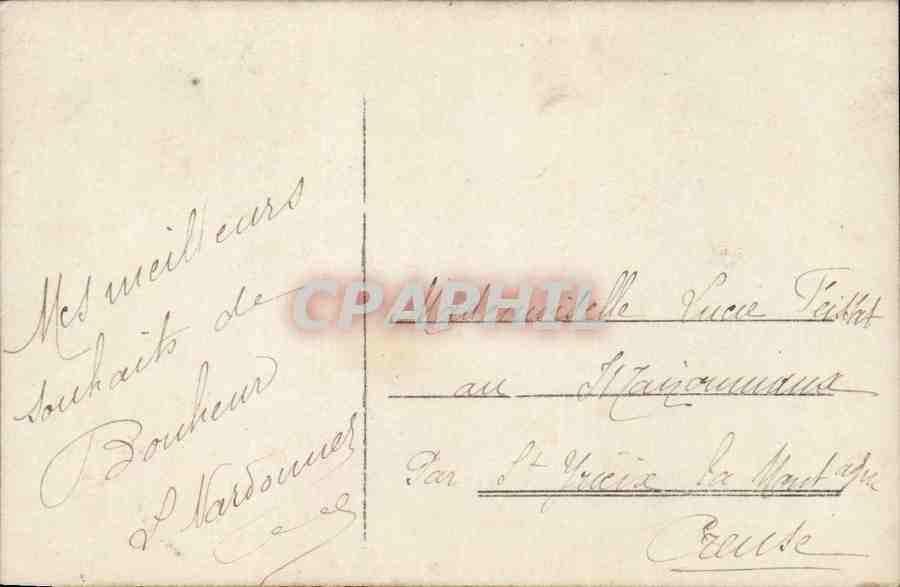 Mes meilleurs
souhaits de
Bonheur
CPAPHIL
Mademoiselle Lucie
au
Par St Yrieix la Montagne
Creuse